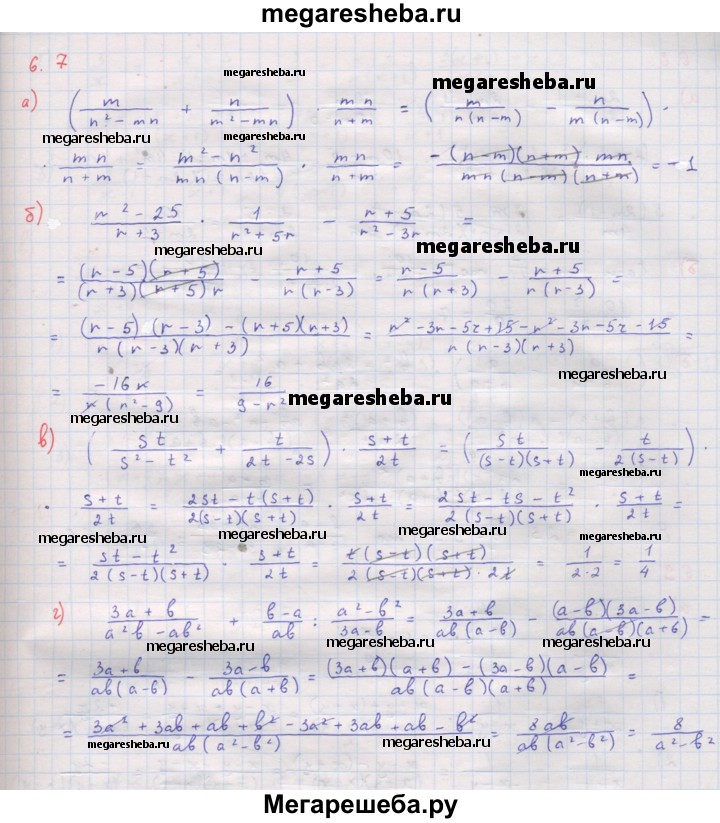 megaresheba.ru
6.7
megaresheba.ru
megaresheba.ru
а) (m/(n² - mn) + n/(m² - mn)) · mn/(n+m) = (m/(n(n-m)) - n/(m(n-m))) ·
megaresheba.ru megaresheba.ru
· mn/(n+m) = (m² - n²)/(mn(n-m)) · mn/(n+m) = -(n-m)(n+m) mn/(mn(n-m)(n+m)) = -1
б) (r² - 25)/(r+3) · 1/(r² + 5r) - (r+5)/(r² - 3r) =
megaresheba.ru megaresheba.ru
= (r-5)(r+5)/((r+3)(r+5)r) - (r+5)/(r(r-3)) = (r-5)/(r(r+3)) - (r+5)/(r(r-3)) =
= ((r-5)(r-3) - (r+5)(r+3))/(r(r-3)(r+3)) = (r² - 3r - 5r + 15 - r² - 3r - 5r - 15)/(r(r-3)(r+3)) =
megaresheba.ru
= -16r/(r(r² - 9)) = 16/(9 - r²)
megaresheba.ru
megaresheba.ru
в) (st/(s² - t²) + t/(2t - 2s)) · (s+t)/2t = (st/((s-t)(s+t)) - t/(2(s-t))) ·
megaresheba.ru
· (s+t)/2t = (2st - t(s+t))/(2(s-t)(s+t)) · (s+t)/2t = (2st - ts - t²)/(2(s-t)(s+t)) · (s+t)/2t =
megaresheba.ru megaresheba.ru megaresheba.ru
= (st - t²)/(2(s-t)(s+t)) · (s+t)/2t = t(s-t)(s+t)/(2(s-t)(s+t) · 2t) = 1/(2·2) = 1/4
г) (3a+b)/(a²b - ab²) + (b-a)/ab : (a² - b²)/(3a-b) = (3a+b)/(ab(a-b)) - (a-b)(3a-b)/(ab(a-b)(a+b)) =
megaresheba.ru megaresheba.ru
= (3a+b)/(ab(a-b)) - (3a-b)/(ab(a+b)) = ((3a+b)(a+b) - (3a-b)(a-b))/(ab(a-b)(a+b)) =
= (3a² + 3ab + ab + b² - 3a² + 3ab + ab - b²)/(ab(a² - b²)) = 8ab/(ab(a² - b²)) = 8/(a² - b²)
megaresheba.ru megaresheba.ru megaresheba.ru
Мегарешеба.ру